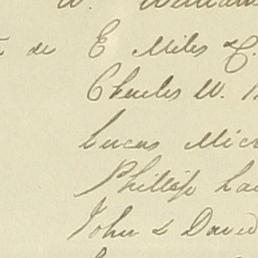 W. William
de E Miles & C.
Charles W.
Lucas Mic
Phillip La
John & David